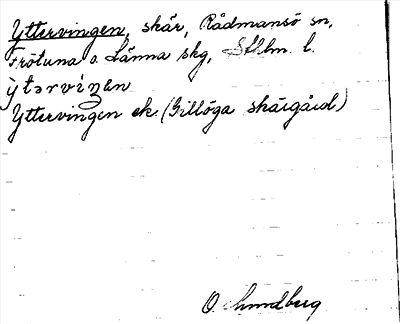 Yttervingen, skär, Rådmansö sn,
Frötuna o. Länna skg, Sthlm. l.
ỳtərvíŋən
Yttervingen ek. (Gillöga skärgård)
O. Lundberg